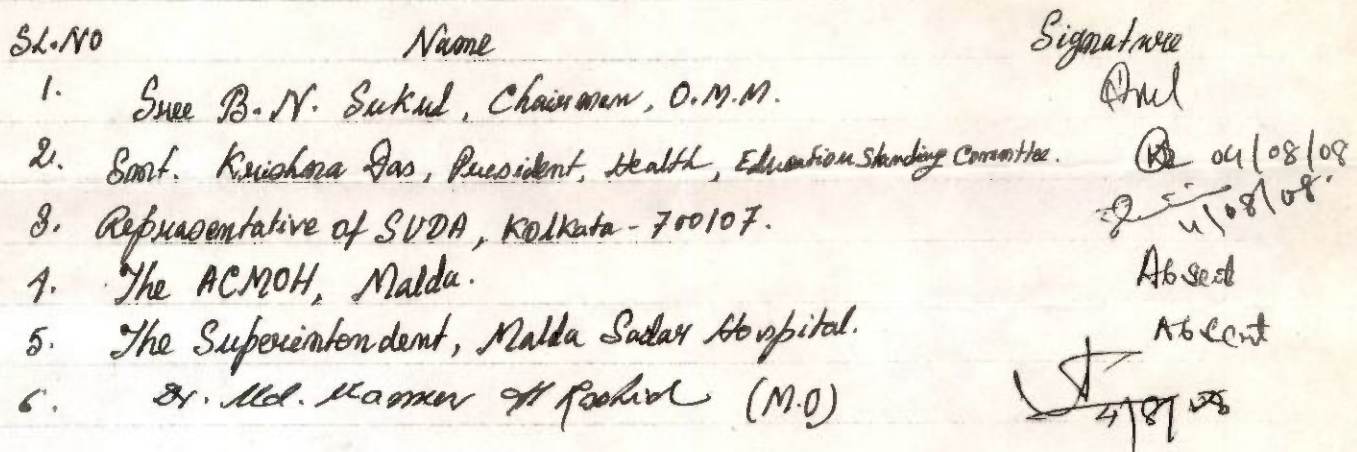 SL.NO Name Signature
1. Sree B.N. Sukul, Chairman, O.M.M.
2. Smt. Krishna Das, President, Health, Education Standing Committee. 04/08/08
3. Representative of SUDA, Kolkata - 700107. 4/08/08
4. The ACMOH, Malda. Absent
5. The Superintendent, Malda Sadar Hospital. Absent
6. Dr. Md. Rashid (M.O) 4/8/08